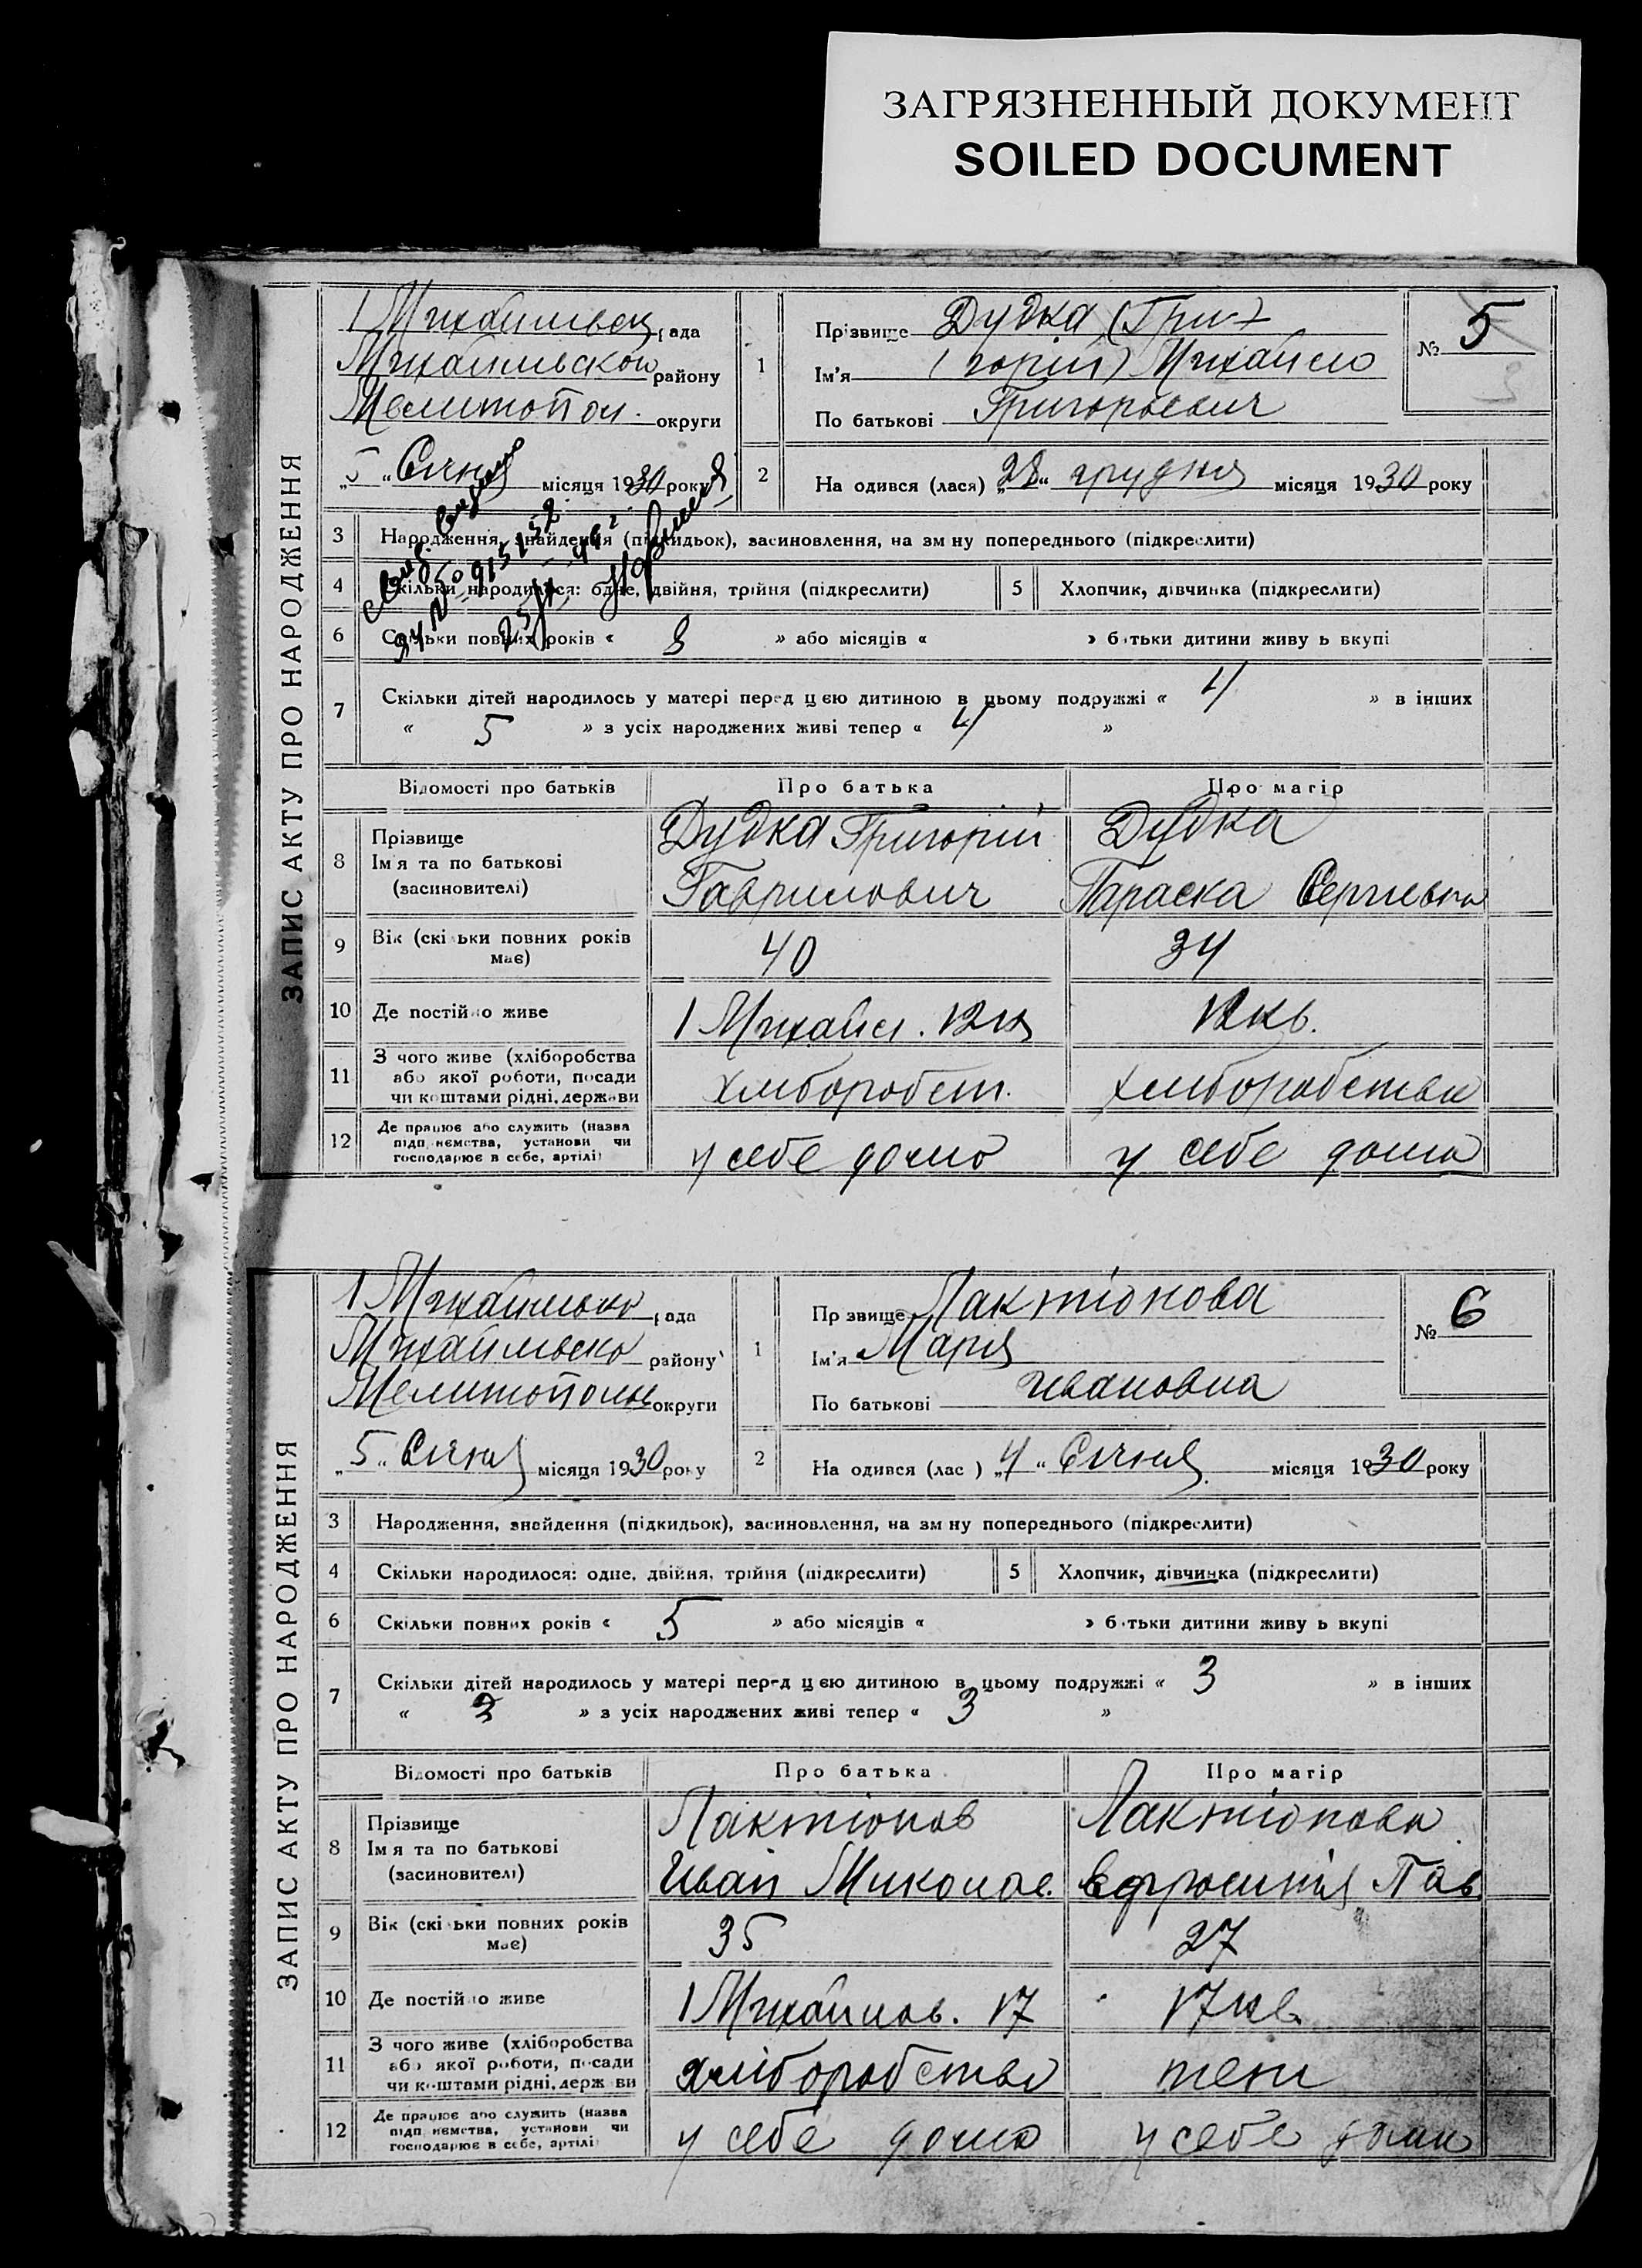 ЗАГРЯЗНЕННЫЙ ДОКУМЕНТ
SOILED DOCUMENT
ЗАПИС АКТУ ПРО НАРОДЖЕННЯ
1 Михайлівськ рада
Михайлівського району
Мелитопол. округи
„5“ Січня місяця 1930 року
1
Прізвище Дудка (Гри-
Ім'я (горій) Михайло
По батькові Григорьевич
№ 5
2
На одився (лася) „28“ грудня місяця 1930 року
3 Народження, знайдення (підкидьок), засиновлення, на зм ну попереднього (підкреслити)
4 Скільки народилося: одне, двійня, трійня (підкреслити)
5 Хлопчик, дівчинка (підкреслити)
6 Скільки повних років « 8 » або місяців « » б тьки дитини живу ь вкупі
7 Скільки дітей народилось у матері перед цією дитиною в цьому подружжі « 4 » в інших
« 5 » з усіх народжених живі тепер « 4 »
Відомості про батьків Про батька Про матір
8 Прізвище
Ім'я та по батькові
(засиновителі)
Дудка Григорій
Гаврилович
Дудка
Параска Сергиевна
9 Вік (скі ьки повних років
має)
40 34
10 Де постійно живе 1 Михайл. 12 кв 12 кв.
11 З чого живе (хліборобства
або якої роботи, посади
чи коштами рідні, держави
хлиборобст. хлиборобства
12 Де працює або служить (назва
підп иємства, установи чи
господарює в себе, артілі)
у себе дома у себе дома
ЗАПИС АКТУ ПРО НАРОДЖЕННЯ
1 Михайлівсько рада
Михайлівсько району
Мелитопольс округи
„5“ Січня місяця 1930 року
1
Пр звище Лактіонова
Ім'я Мария
По батькові Ивановна
№ 6
2
На одився (лас ) „4“ Січня місяця 1930 року
3 Народження, знайдення (підкидьок), засиновлення, на зм ну попереднього (підкреслити)
4 Скільки народилося: одне, двійня, трійня (підкреслити)
5 Хлопчик, дівчинка (підкреслити)
6 Скільки повних років « 5 » або місяців « » б тьки дитини живу ь вкупі
7 Скільки дітей народилось у матері перед цією дитиною в цьому подружжі « 3 » в інших
« 3 » з усіх народжених живі тепер « 3 »
Відомості про батьків Про батька Про матір
8 Прізвище
Ім'я та по батькові
(засиновителі)
Лактіонов
Иван Миколае.
Лактіонова
Ефросинія Пав
9 Вік (скі ьки повних років
має)
35 27
10 Де постійно живе 1 Михайлов. 17 17 кв.
11 З чого живе (хліборобства
або якої роботи, посади
чи коштами рідні, держ ви
хліборобства теж
12 Де працює або служить (назва
підп иємства, установи чи
господарює в себе, артілі)
у себе дома у себе дома